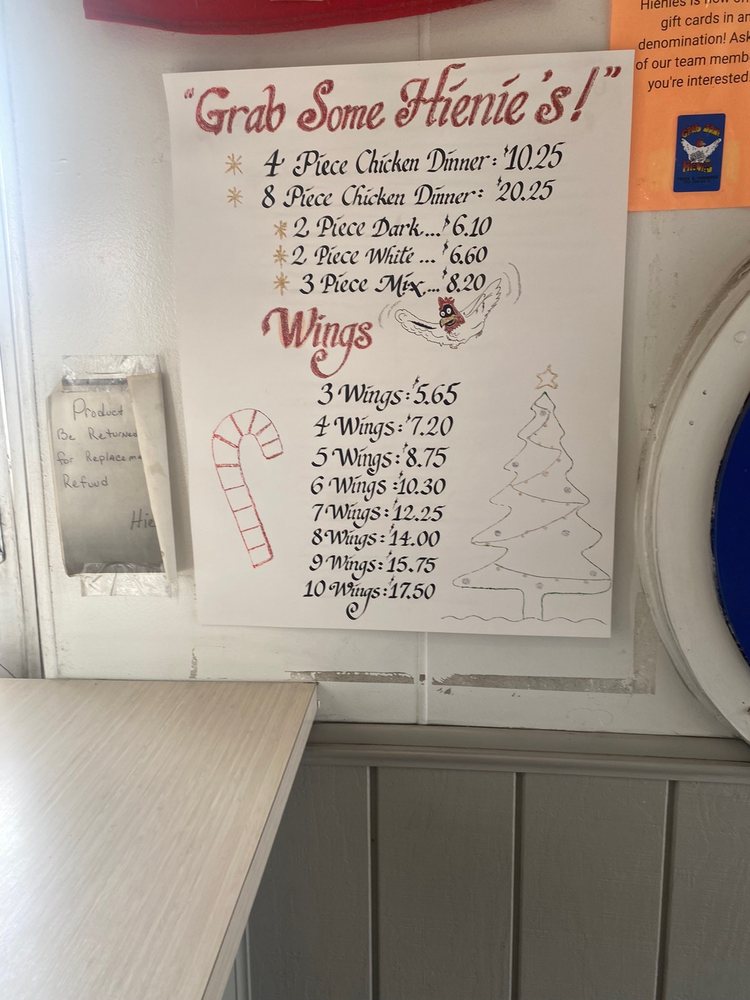 "Grab Some Hienie's!"
4 Piece Chicken Dinner: $10.25
8 Piece Chicken Dinner: $20.25
2 Piece Dark...$6.10
2 Piece White ... $6.60
3 Piece Mix...$8.20
Wings
3 Wings: $5.65
4 Wings: $7.20
5 Wings: $8.75
6 Wings: $10.30
7 Wings: $12.25
8 Wings: $14.00
9 Wings: $15.75
10 Wings: $17.50
Product
Be Returned
for Replacem
Refund
Hie
Hienies is now
gift cards in an
denomination! Ask
of our team memb
you're interested
GRAB SOME
HIENIES